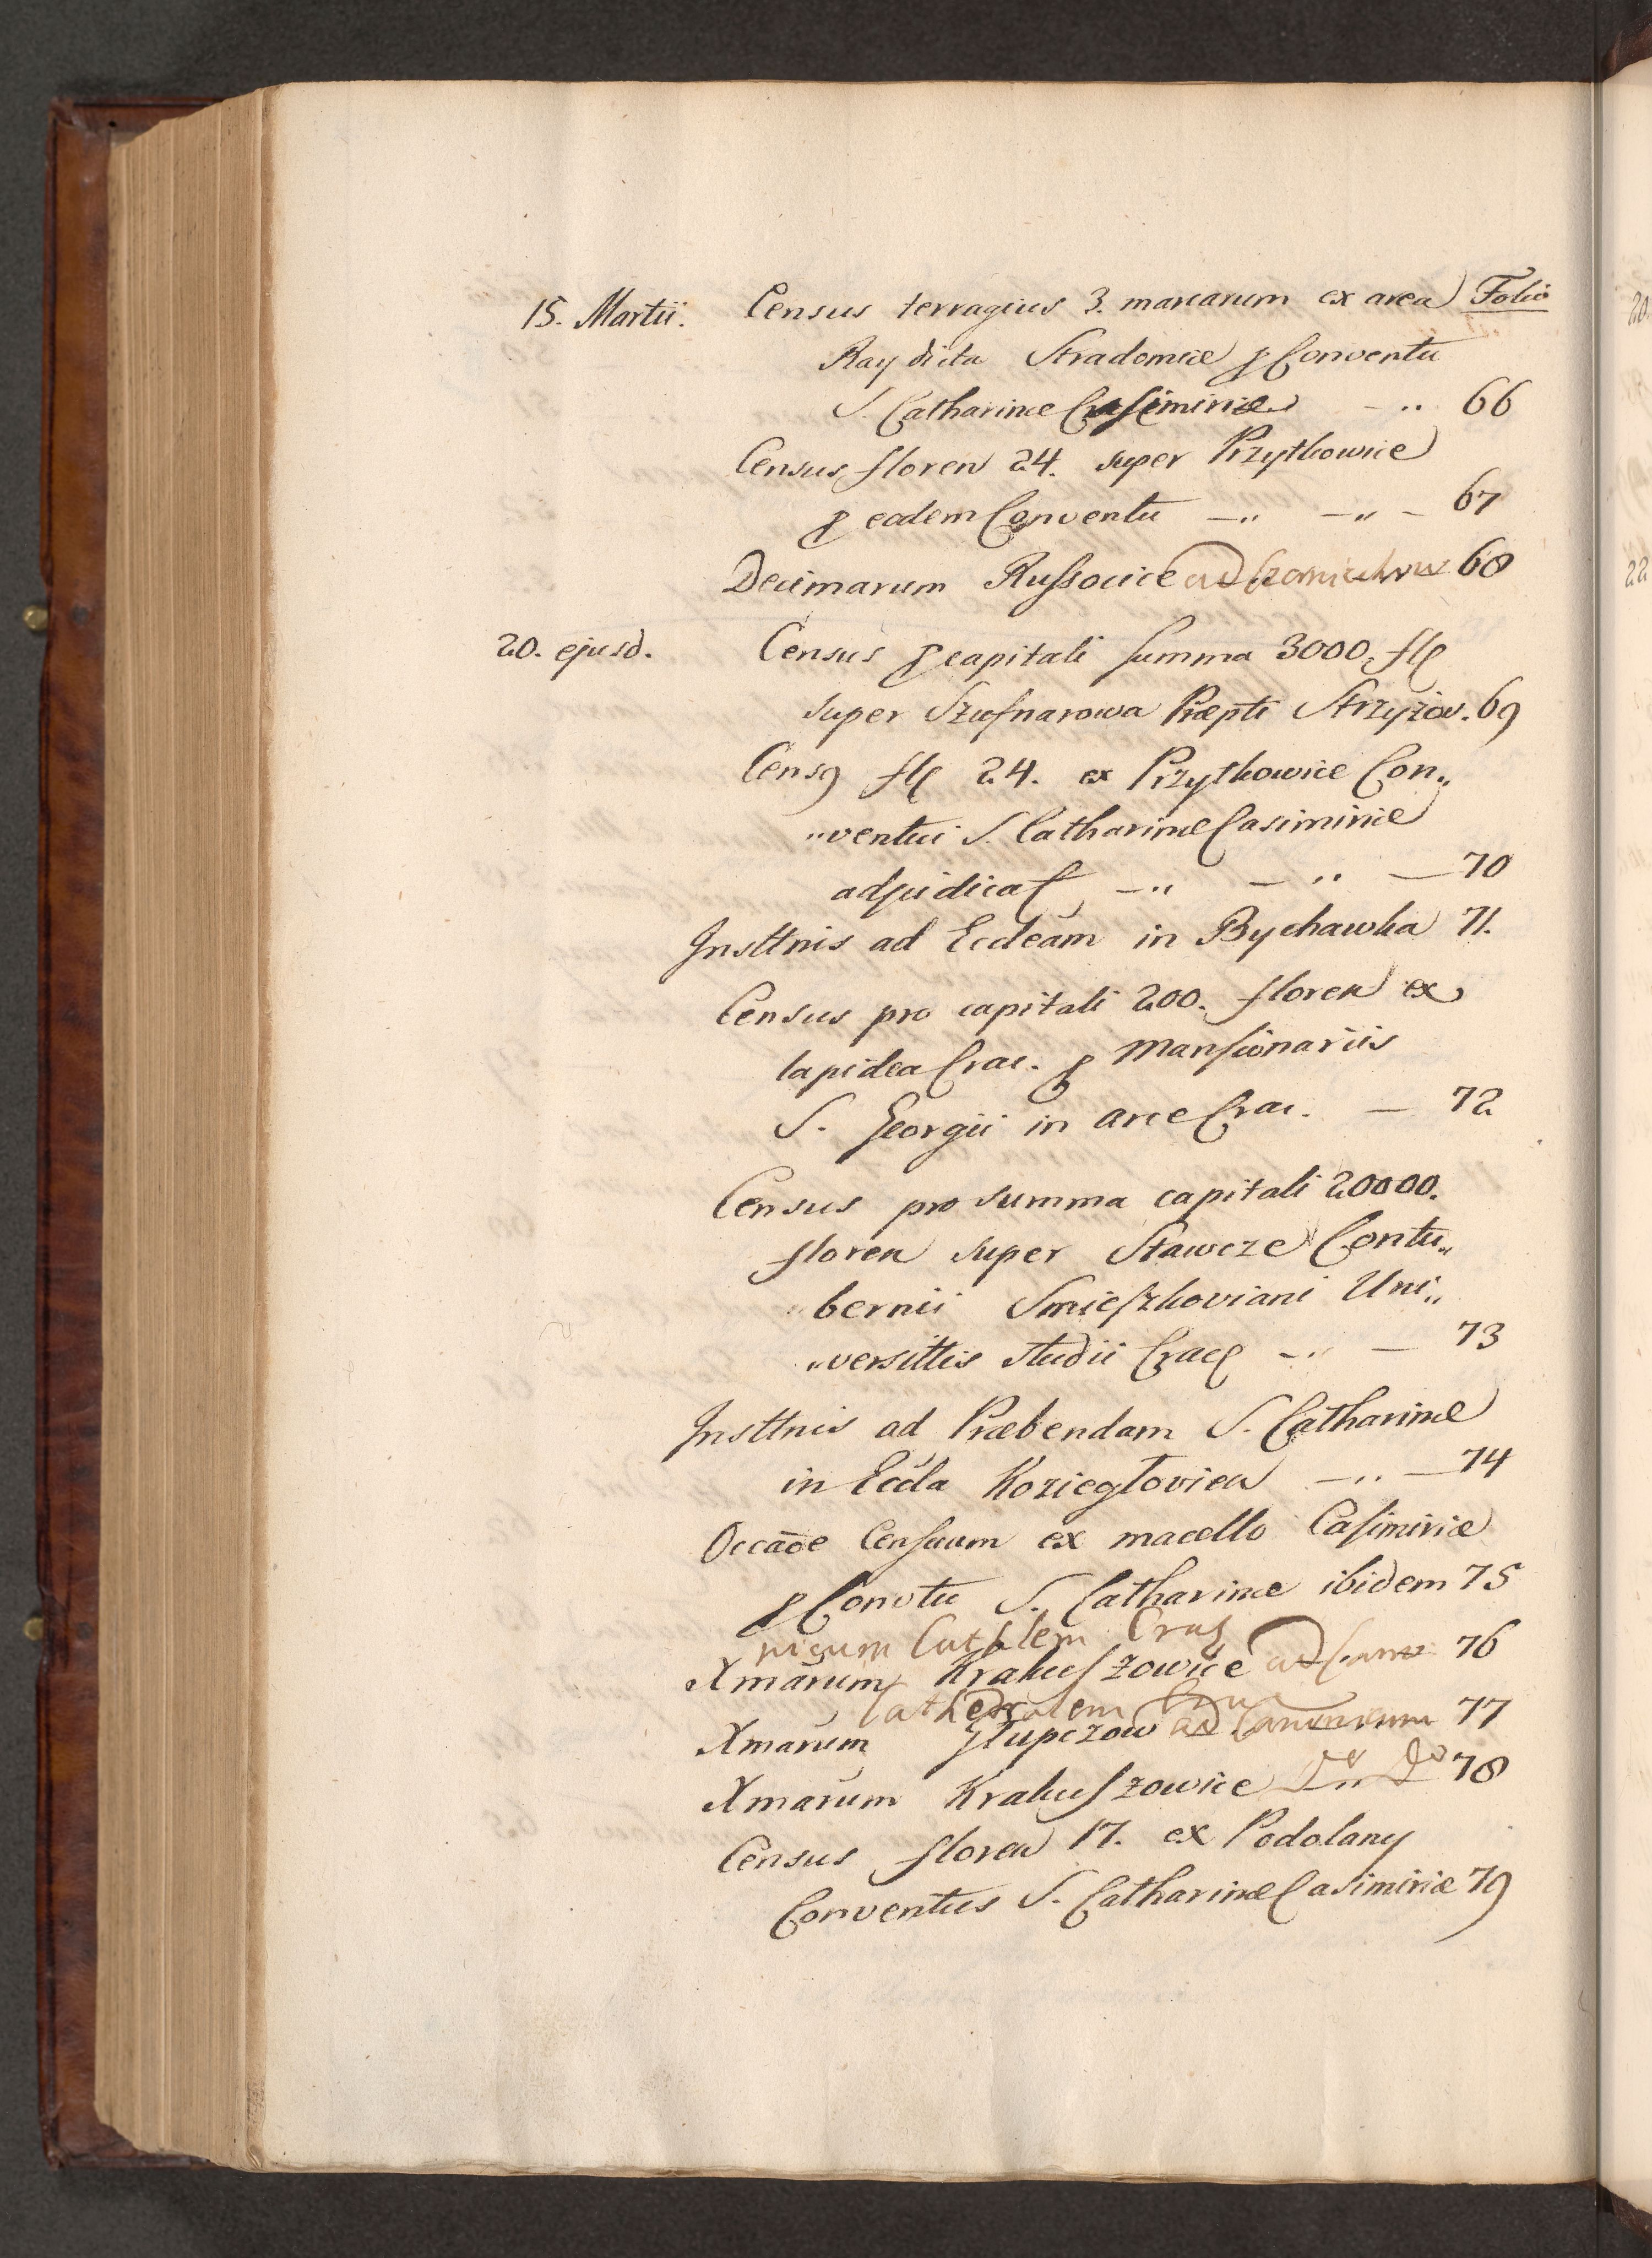 Folio
15. Martii. Census terragius 3. marcarum ex area
Ray dicta Stradomiæ p Conventu
S. Catharinæ Casimiriæ - ,, 66
Census floren 24. super Przytkowice
p eodem Conventu -,, -,, - 67
Decimarum Russocice ad 68
20. ejusd. Census p capitali summa 3000. fl
super Szufnarowa Præpti Strzyżov. 69
Census fl 24. ex Przytkowice Con,,
,,ventui S. Catharinæ Casimiriæ
adjudicat -,, - ,, - 70
Insttnis ad Eccleam in Bychawka 71.
Census pro capitali 200. floren ex
lapidea Crac. p Mansionariis
S. Georgii in arce Crac. - 72
Census pro summa capitali 20000.
floren super Stawcze Contu,,
,,bernii Smieszkoviani Uni,,
,,versittis studii Crac -,, - 73
Insttnis ad Præbendam S. Catharinæ
in Eccla Koziegłovien -,, - 74
Occaōe Censuum ex macello Casimiriæ
p Convtu S. Catharinæ ibidem 75
Crac
Xmarum Krakuszowice ad 76
Cathedralem
Xmarum Głupczow ad Canonicum 77
Xmarum Krakuszowice 78
Census floren 17. ex Podolany
Conventus S. Catharinæ Casimiriæ 79